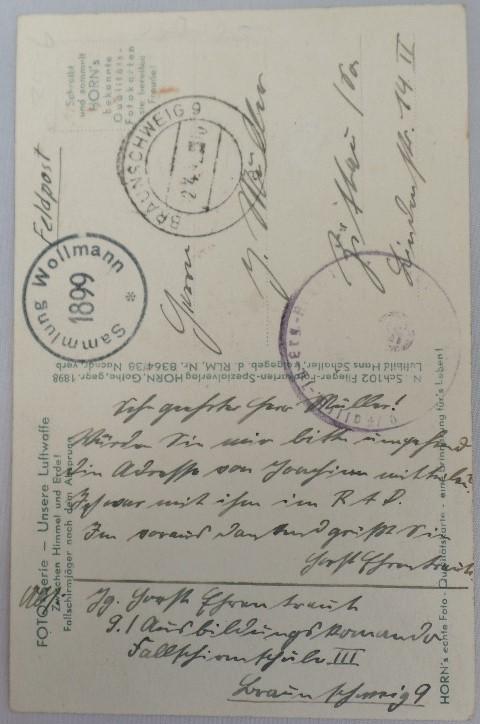 Feldpost
Schreibt
und sammelt
HORN's
bekannte
Qualitäts-
Fotokarten
sie bereiten
Freude!
BRAUNSCHWEIG 9
Sammlung Wollmann *
1899
Herrn
J. Müller
Zittau / Sa
Lindenstr. 14 II
N. Sch 102 Flieger-Foto-Karten-Spezialverlag HORN, Gotha, gegr. 1898
Luftbild Hans Schaller, freigegeb. d. RLM, Nr. 8364/38 Nachdr. verb.
FOTO-Serie – Unsere Luftwaffe
Zwischen Himmel und Erde!
Fallschirmjäger nach dem Absprung
HORN's echte Foto-Qualitätskarte - eine Erinnerung für's Leben!
Sehr geehrter Herr Müller!
Würden Sie mir bitte umgehend
die Adresse von Joachim mitteilen.
Ich war mit ihm im R A D.
Im voraus dankend grüßt Sie
Horst Ehrentraut
Abs.
Jg. Horst Ehrentraut
9. / Ausbildungskomando
Fallschirmschule III
Braunschweig 9